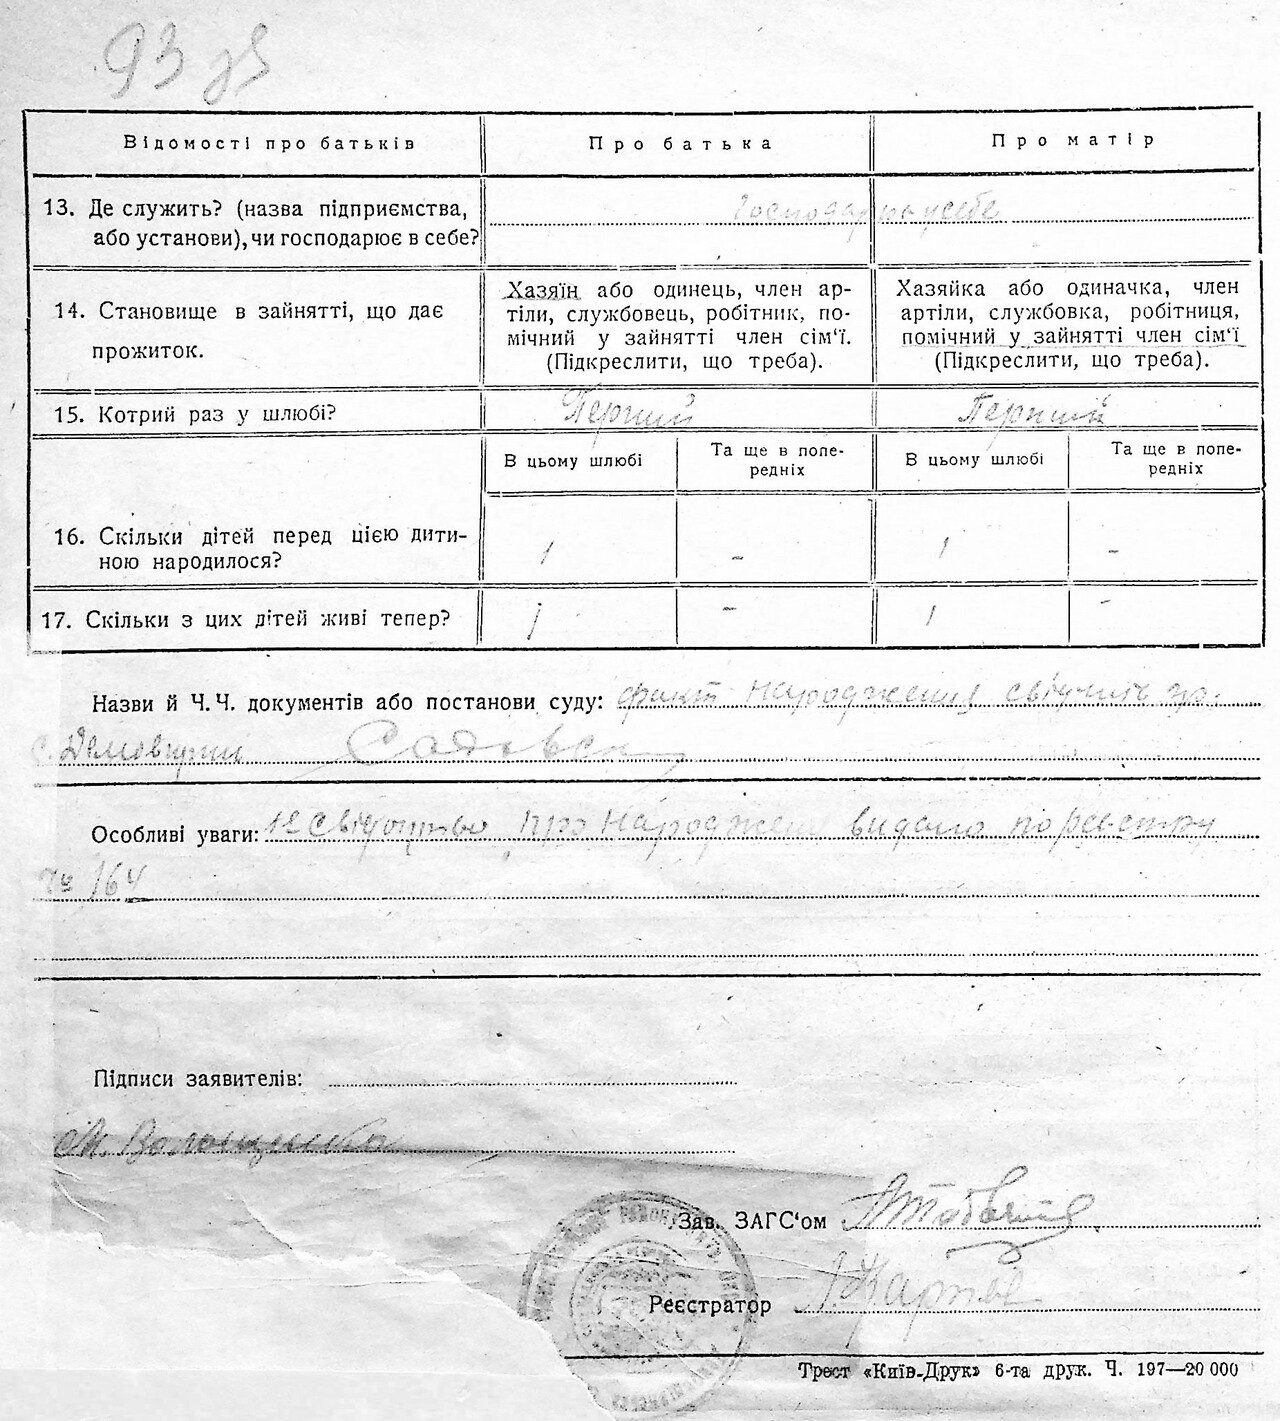 93 зв
Відомості про батьків Про батька Про матір
13. Де служить? (назва підприємства, Господарює у себе
або установи), чи господарює в себе?
14. Становище в зайнятті, що дає
прожиток.
Хазяїн або одинець, член ар-
тіли, службовець, робітник, по-
мічний у зайнятті член сім‘ї.
(Підкреслити, що треба).
Хазяйка або одиначка, член
артіли, службовка, робітниця,
помічний у зайнятті член сім‘ї
(Підкреслити, що треба).
15. Котрий раз у шлюбі? Перший Перший
В цьому шлюбі Та ще в попе-
редніх В цьому шлюбі Та ще в попе-
редніх
16. Скільки дітей перед цією дити-
ною народилося? 1 - 1 -
17. Скільки з цих дітей живі тепер? 1 - 1 -
Назви й Ч.Ч. документів або постанови суду: факт народження свідчить гр.
с. Демовщини
Особливі уваги: свідоцтво про народжен видано по реєстру
№ 164
Підписи заявителів:
М. Волощенко
Зав. ЗАГС‘ом
Реєстратор
Трест «Київ-Друк» 6-та друк. Ч. 197—20 000